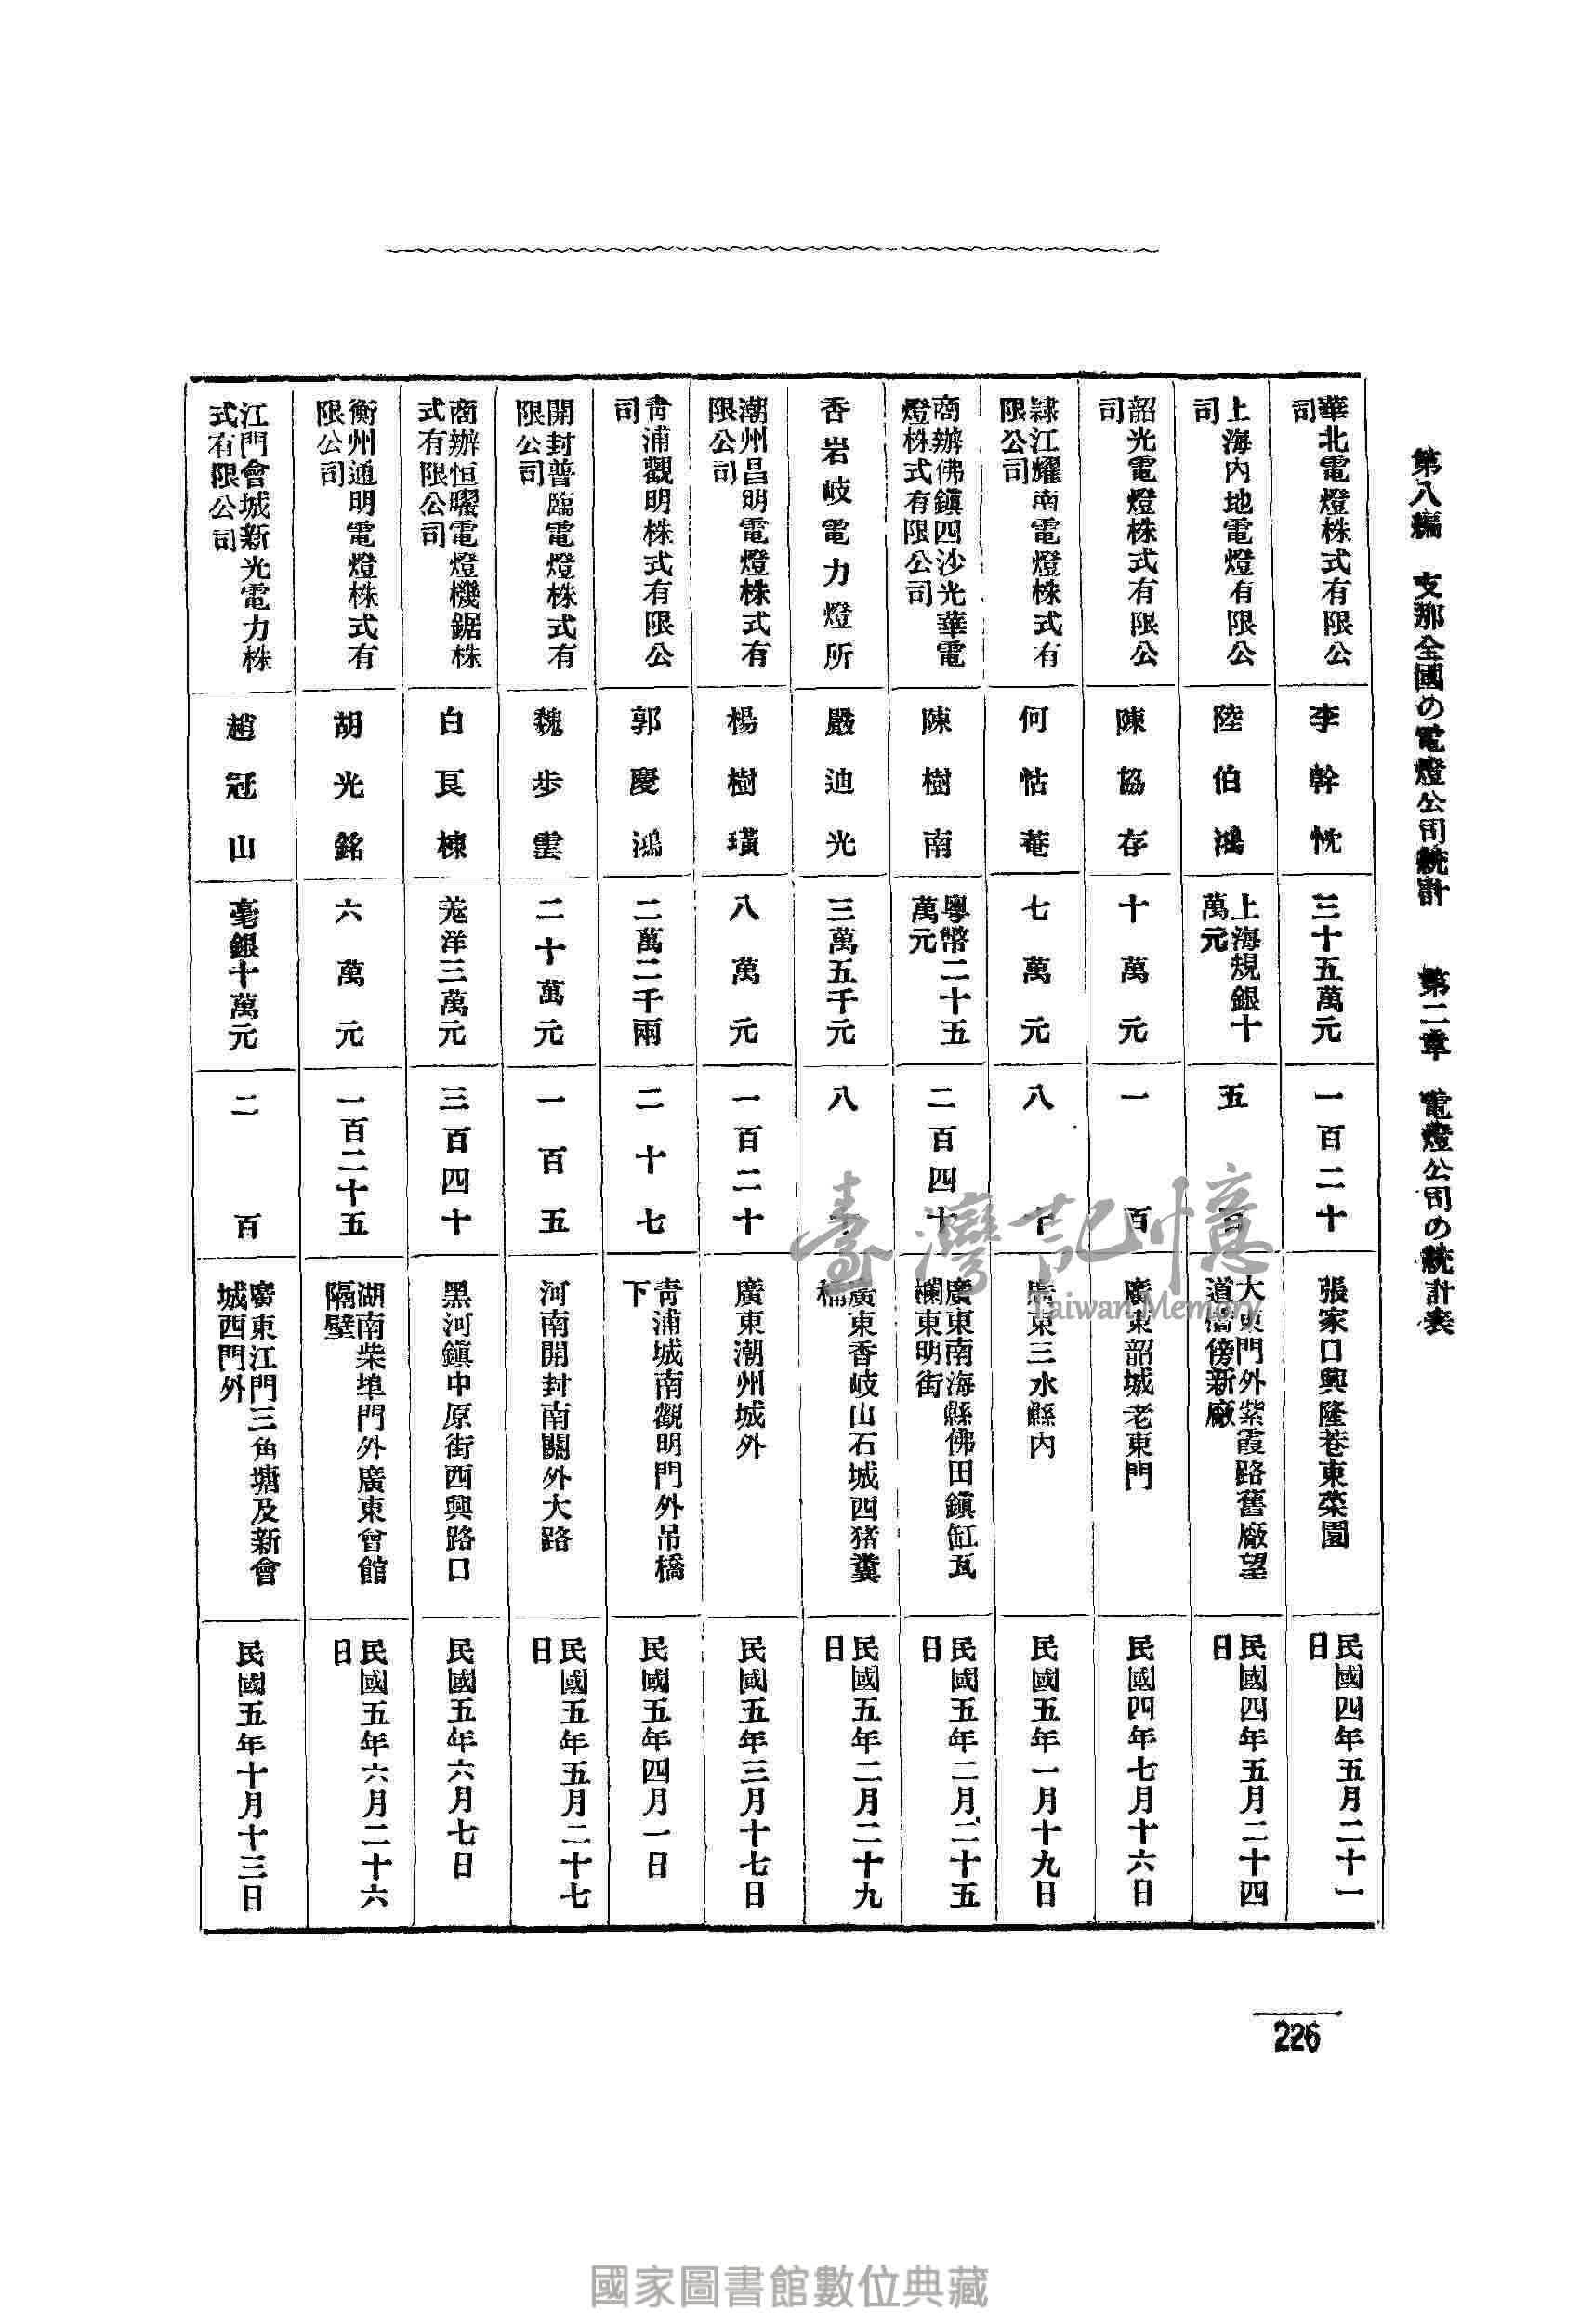 第八編 支那全國の電燈公司統計 第二章 電燈公司の統計表
華北電燈株式有限公
司
李幹忱
三十五萬元
一百二十
張家口興隆巷東菜園
民國四年五月二十一
日
上海內地電燈有限公
司
陸伯鴻
上海規銀十
萬元
五百
大東門外紫霞路舊廠望
道橋傍新廠
民國四年五月二十四
日
韶光電燈株式有限公
司
陳協存
十萬元
一百
廣東韶城老東門
民國四年七月十六日
江耀南電燈株式有
限公司
何怙菴
七萬元
八十
廣東三水縣內
民國五年一月十九日
商辦佛鎭四沙光華電
燈株式有限公司
陳樹南
粵幣二十五
萬元
二百四十
廣東南海縣佛田鎭缸瓦
欄東明街
民國五年二月二十五
日
香岩岐電力燈所
嚴迪光
三萬五千元
八十
廣東香岐山石城西猪糞
桶
民國五年二月二十九
日
潮州昌明電燈株式有
限公司
楊樹璜
八萬元
一百二十
廣東潮州城外
民國五年三月十七日
青浦觀明株式有限公
司
郭慶鴻
二萬二千兩
二十七
青浦城南觀明門外吊橋
下
民國五年四月一日
開封普臨電燈株式有
限公司
魏步雲
二十萬元
一百五
河南開封南關外大路
民國五年五月二十七
日
商辦恒曜電燈機鋸株
式有限公司
白艮棟
羗洋三萬元
三百四十
黑河鎭中原街西興路口
民國五年六月七日
衡州通明電燈株式有
限公司
胡光銘
六萬元
一百二十五
湖南柴埠門外廣東會館
隔壁
民國五年六月二十六
日
江門會城新光電力株
式有限公司
趙冠山
毫銀十萬元
二百
廣東江門三角塘及新會
城西門外
民國五年十月十三日
226
臺灣記憶
Taiwan Memory
國家圖書館數位典藏